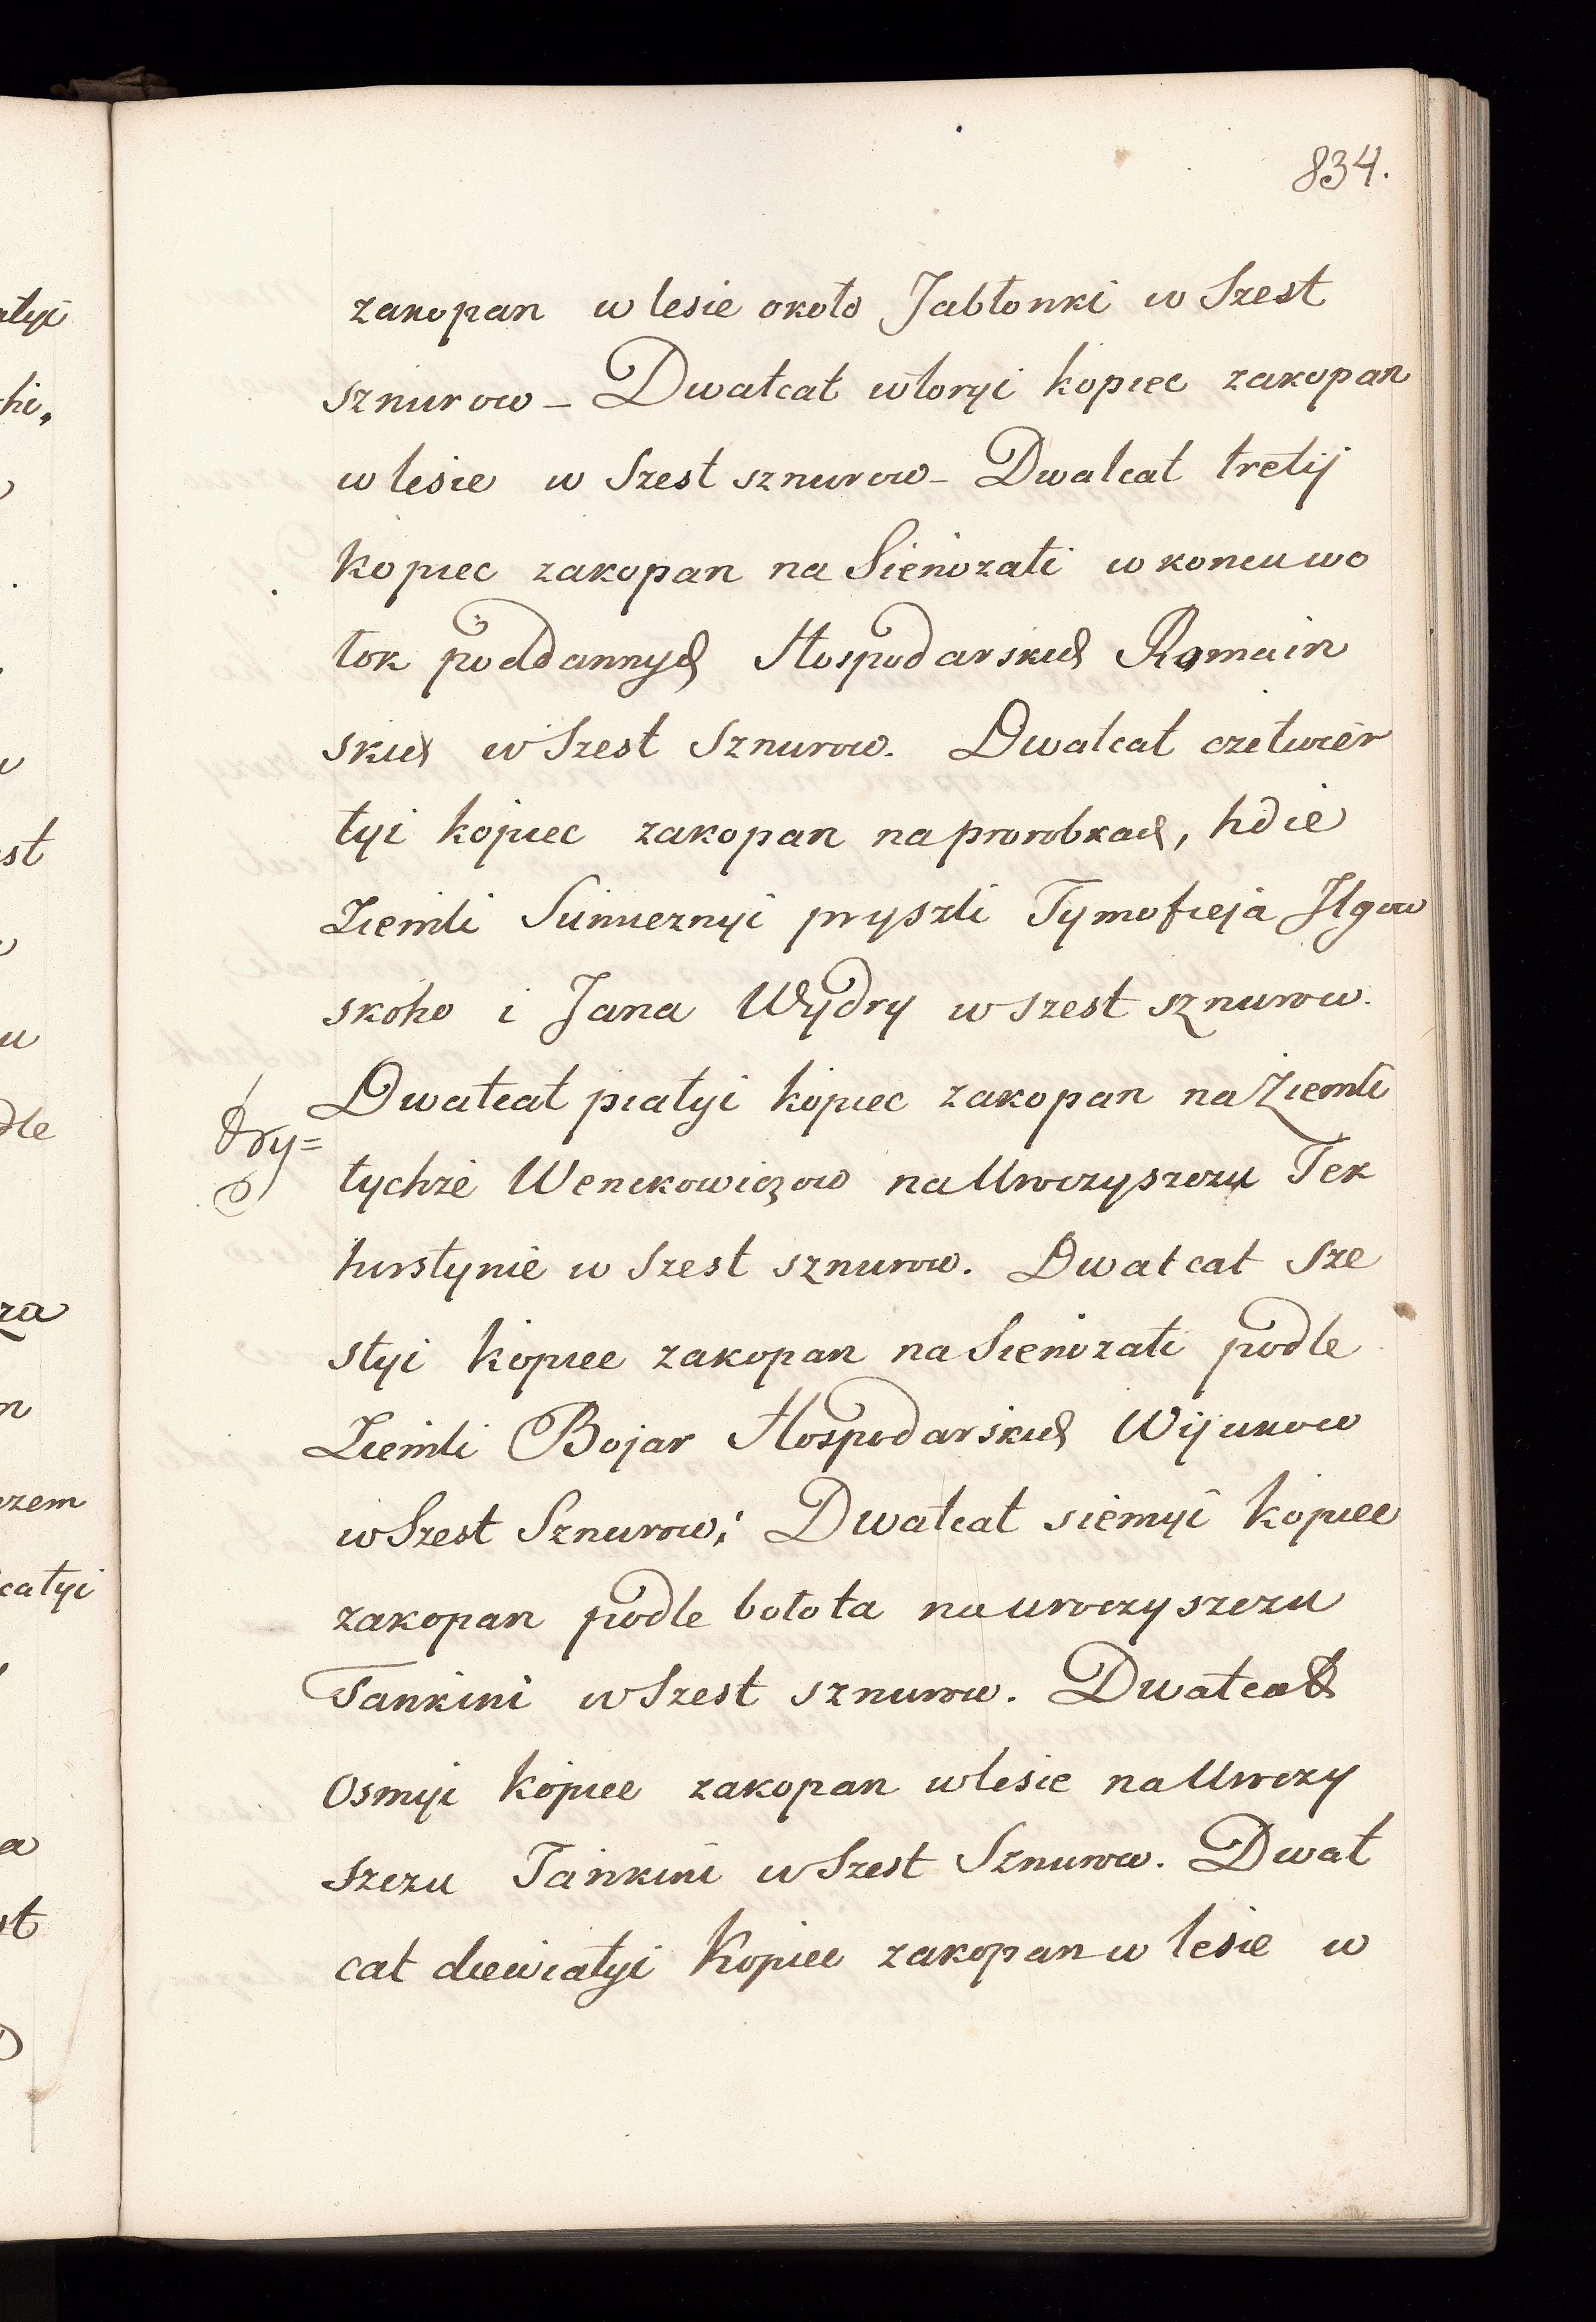 834.
zakopan w lesie około Jabłonki w Szest
sznurow – Dwatcat wtoryi kopiec zakopan
w lesie w Szest sznurow – Dwatcat tretij
kopiec zakopan na Sienożati w koncu wo
łok poddannych Hospodarskich Romain
skich w Szest Sznurow. Dwatcat czetwer
tyi kopiec zakopan na prorobkach, hdie
Ziemli Sumieznyi pryszli Tymofieja Ilgow
skoho i Jana Wydry w szest sznurow.
Dwatcat piatyi kopiec zakopan na Ziemli
tychże Wenckowiczow na Uroczyszczu Tek
hrstynie w Szest sznurow. Dwatcat Sze
styi kopiec zakopan na Sienożati podle
Ziemli Bojar Hospodarskich Wijukow
w Szest Sznurow; Dwatcat siemyi kopiec
zakopan podle bołota na uroczyszczu
Tankini w Szest sznurow. Dwatcat
Osmyi kopiec zakopan w lesie na Uroczy
szczu Tankini w Szest Sznurow. Dwat
cat dewiatyi Kopiec zakopan w lesie w